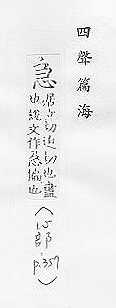 四聲篇海
急
居立切迫切也盡
也說文作㤂褊也
（心部
p.351